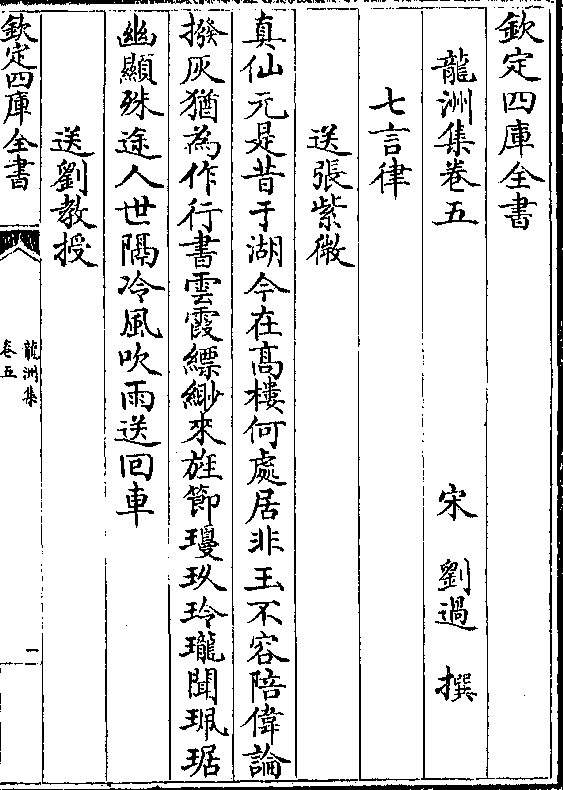 欽定四庫全書
龍洲集卷五
宋　劉過　撰
七言律
送張紫微
真仙元是昔于湖今在髙樓何處居非玉不容陪偉論
撥灰猶為作行書雲霞縹緲來旌節瓊玖玲瓏聞珮琚
幽顯殊途人世隔冷風吹雨送回車
送劉教授
欽定四庫全書
龍洲集
卷五
一